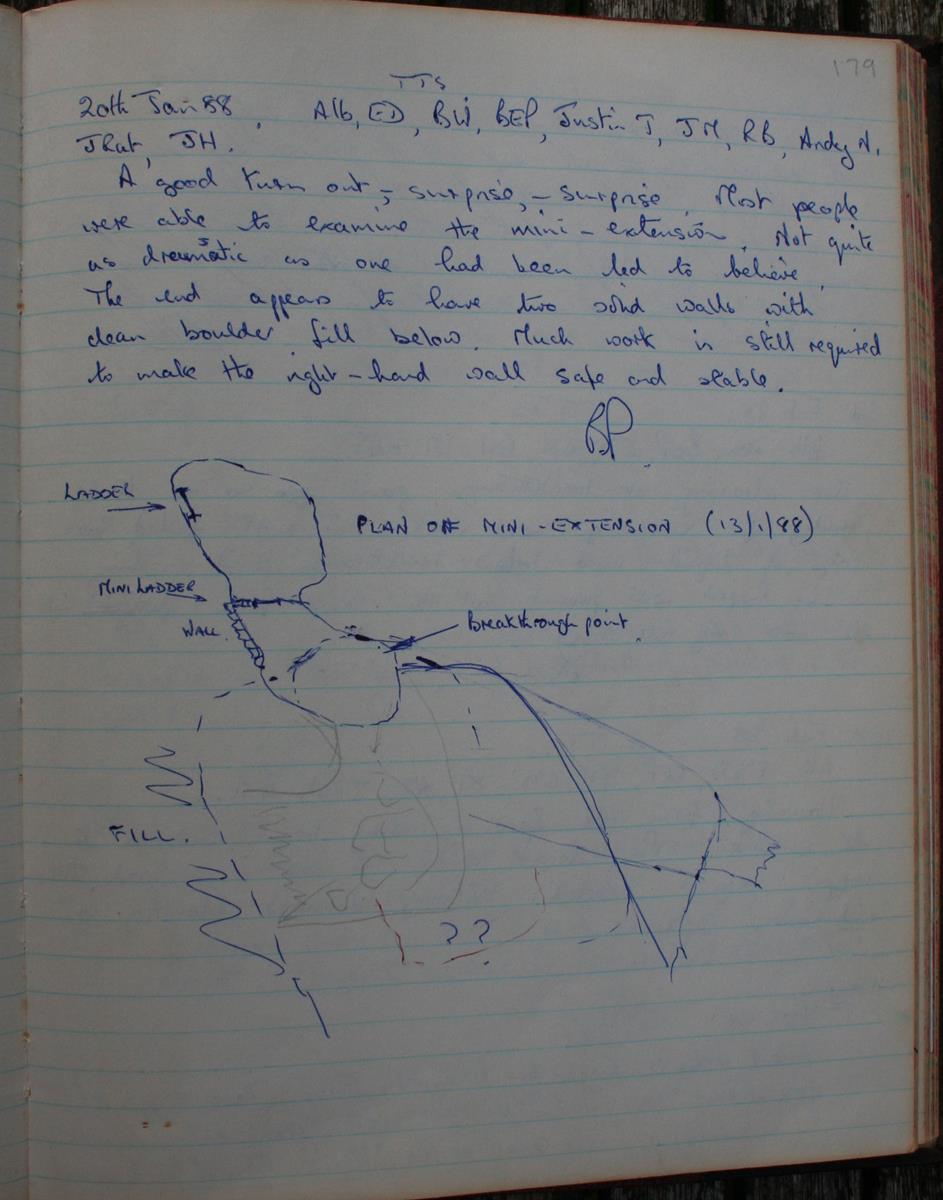 179
TTS
20th Jan 88. Alb, ED, BW, BEP, Justin T, JM, RB, Andy N,
JRat, JH.
A good turn out, – surprise, – surprise. Most people
were able to examine the mini-extension. Not quite
as dramatic as one had been led to believe.
The end appears to have two solid walls with
clean boulder fill below. Much work is still required
to make the right-hand wall safe and stable.
BP.
LADDER
PLAN OF MINI-EXTENSION (13/1/88)
MINI LADDER
WALL.
Breakthrough point.
FILL.
??